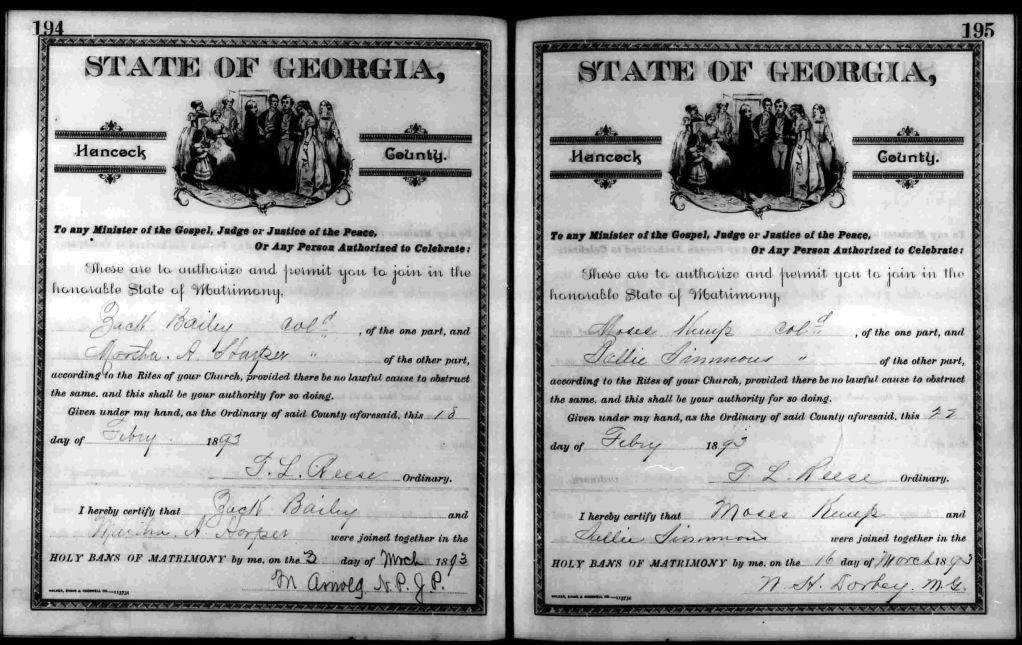 194
STATE OF GEORGIA,
Hancock County.
To any Minister of the Gospel, Judge or Justice of the Peace,
Or Any Person Authorized to Celebrate:
These are to authorize and permit you to join in the
honorable State of Matrimony,
Zack Bailey Col^d , of the one part, and
Martha. A. Harper " of the other part,
according to the Rites of your Church, provided there be no lawful cause to obstruct
the same, and this shall be your authority for so doing.
Given under my hand, as the Ordinary of said County aforesaid, this 18
day of Febry 1893
T. L. Reese Ordinary.
I hereby certify that Zack Bailey and
Martha. A Harper were joined together in the
HOLY BANS OF MATRIMONY by me, on the 3 day of Mrch 1893
M Arnold N.P. J.P.
195
STATE OF GEORGIA,
Hancock County.
To any Minister of the Gospel, Judge or Justice of the Peace,
Or Any Person Authorized to Celebrate:
These are to authorize and permit you to join in the
honorable State of Matrimony,
Moses Kemp Col^d , of the one part, and
Sallie Simmons " of the other part,
according to the Rites of your Church, provided there be no lawful cause to obstruct
the same, and this shall be your authority for so doing.
Given under my hand, as the Ordinary of said County aforesaid, this 22
day of Febry 1893
T. L. Reese Ordinary.
I hereby certify that Moses Kemp and
Sallie Simmons were joined together in the
HOLY BANS OF MATRIMONY by me, on the 16 day of March 1893
W. H. Dorkey. M.G.